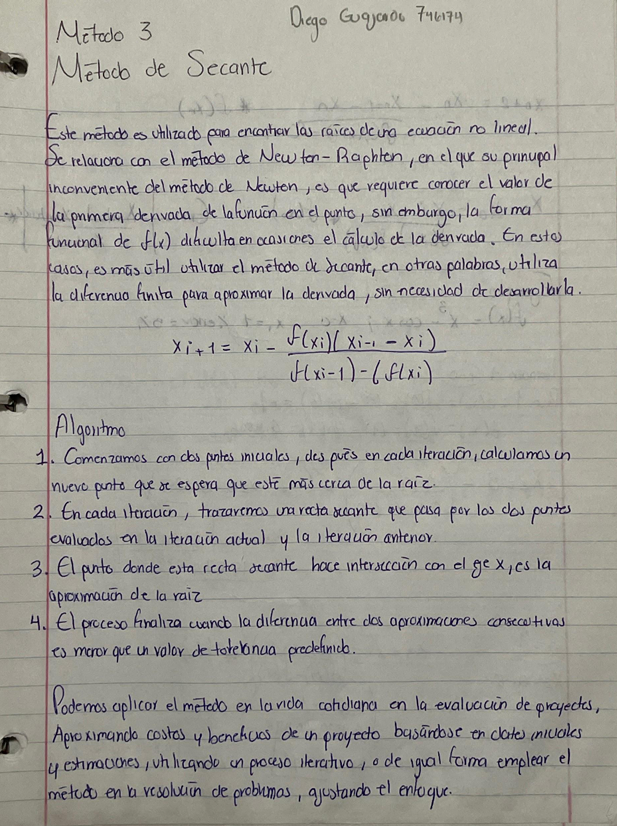 Diego Guajardo 746174
Método 3
Método de Secante
Este método es utilizado para encontrar las raíces de una ecuación no lineal.
Se relaciona con el método de Newton-Raphton, en el que su principal
inconveniente del método de Newton, es que requiere conocer el valor de
la primera derivada de la función en el punto, sin embargo, la forma
funcional de f(x) dificulta en ocasiones el cálculo de la derivada. En estos
casos, es más útil utilizar el método de secante, en otras palabras, utiliza
la diferencia finita para aproximar la derivada, sin necesidad de desarrollarla.
xi+1 = xi - f(xi)(xi-1 - xi)
f(xi-1) - (f(xi)
Algoritmo
1. Comenzamos con dos puntos iniciales, después en cada iteración, calculamos un
nuevo punto que se espera que esté más cerca de la raíz.
2. En cada iteración, trazaremos una recta secante que pasa por los dos puntos
evaluados en la iteración actual y la iteración anterior.
3. El punto donde esta recta secante hace intersección con el eje x, es la
aproximación de la raiz
4. El proceso finaliza cuando la diferencia entre dos aproximaciones consecutivas
es menor que un valor de tolerancia predefinido.
Podemos aplicar el método en la vida cotidiana en la evaluación de proyectos,
Aproximando costos y beneficios de un proyecto basándose en datos iniciales
y estimaciones, utilizando un proceso iterativo, o de igual forma emplear el
método en la resolución de problemas, ajustando el enfoque.